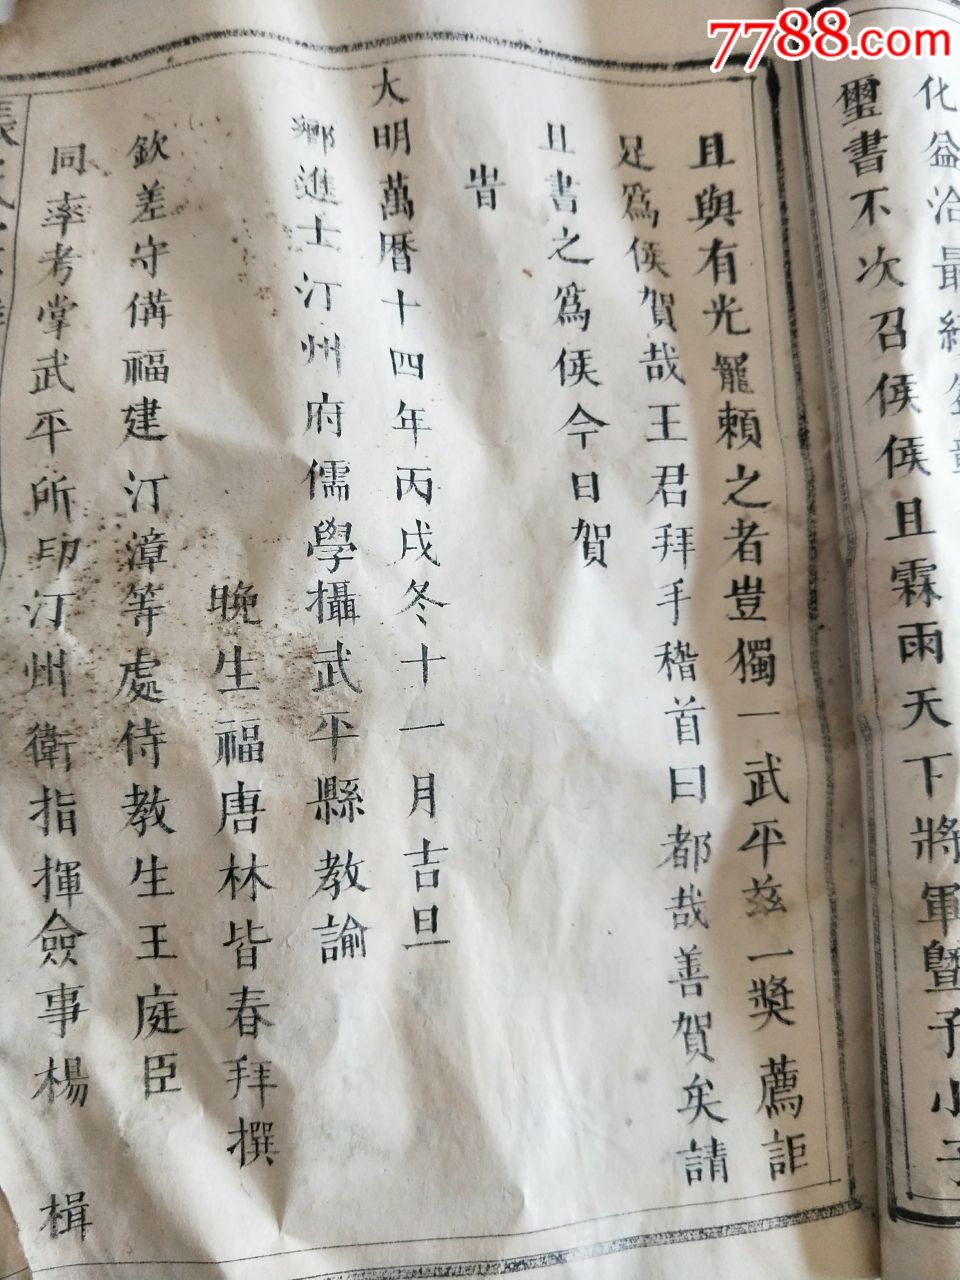 7788.com
化益洽最
璽書不次召侯侯且霖雨天下將軍暨予小子
且與有光寵賴之者豈獨一武平茲一獎薦詎
足爲侯賀哉王君拜手稽首曰都哉善賀矣請
且書之爲侯今日賀
旹
大明萬曆十四年丙戌冬十一月吉旦
鄉進士汀州府儒學攝武平縣教諭
晚生福唐林皆春拜撰
欽差守備福建汀漳等處侍教生王庭臣
同率考掌武平所印汀州衛指揮僉事楊 楫